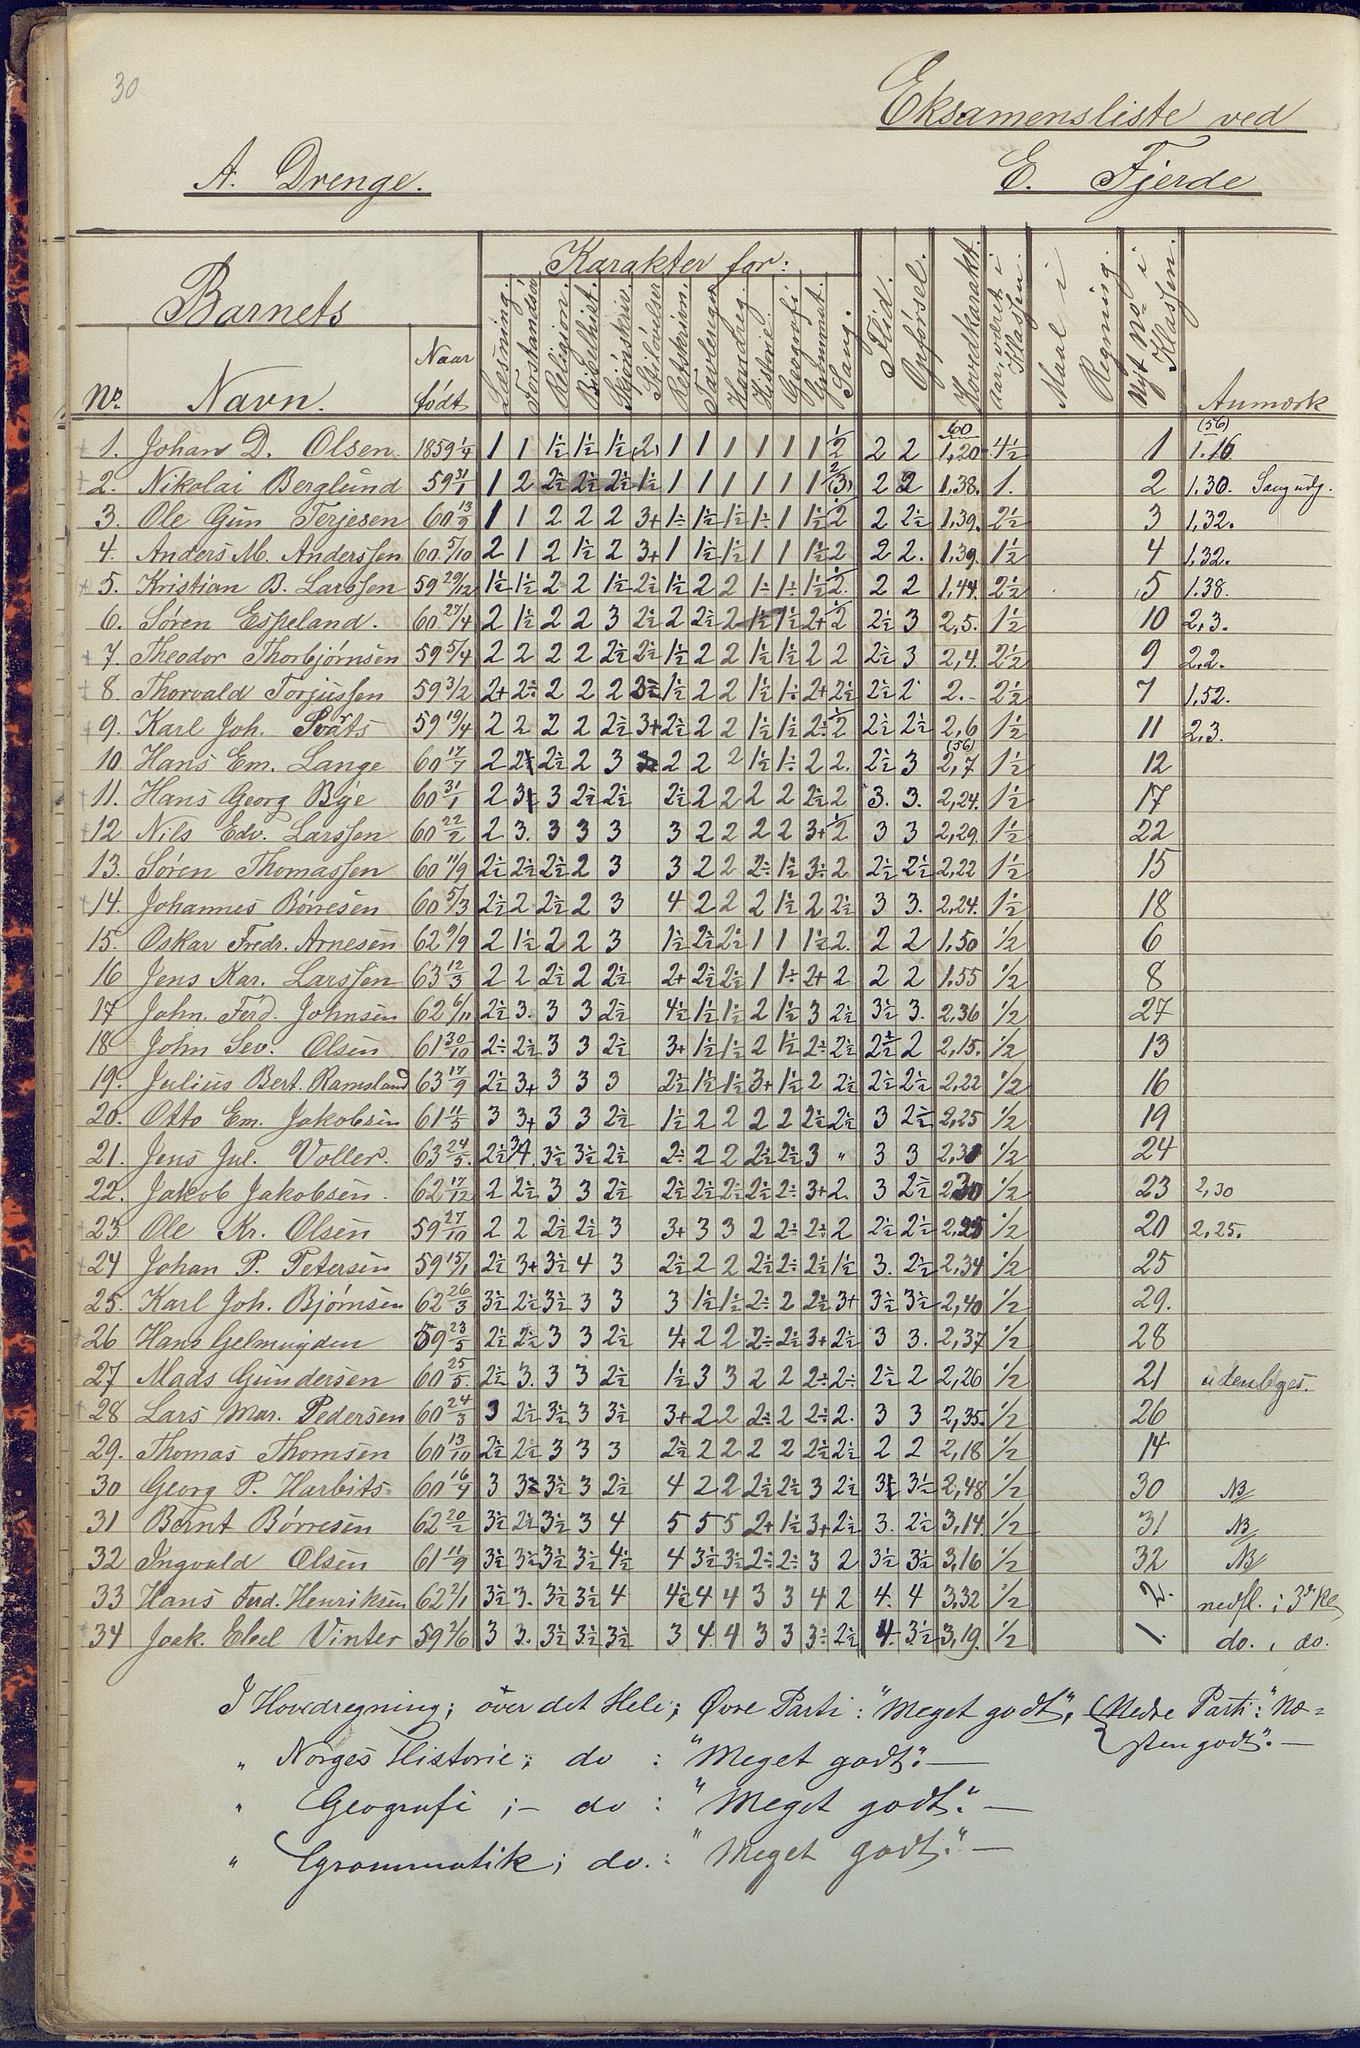 30
Eksamensliste ved
A. Drenge.
E. Fjerde
Barnets
Karakter for:
No. Navn. Naar født Læsning. Forstandsø. Religion. Bibelhist. Skjønskriv. Stiløvelser Retskrivn. Tavleregn. Hovedreg. Historie Geografi Grammat. Sang. Flid. Opførsel. Hovedkarakt. aar været i Klassen. Maal i Regning. Nyt No i Klassen. Anmærk
1. Johan D. Olsen 1859 1/4 1 1 1½ 1½ 1½ (2) 1 1 1 1 1 1 ½ 2 2 2 60 1,20 4½ 1 (56) 1.16
2. Nikolai Berglund 59 31/1 1 2 2½ 2½ 2½ 1½ 1 1 1 1 1 1 2 (3) 2 2 1,38. 1. 2 1.30. Sang udg.
3. Ole Gun Terjesen 60 13/9 1 1 2 2 2 3+ 1÷ 1½ 1½ 1÷ 1 1½ 2 2 2½ 1,39. 2½ 3 1,32.
4. Anders M. Anderssen 60 5/10 2 1 2 1½ 2 3+ 1 1½ 1½ 1 1 1½ 2 2 2. 1,39. 1½ 4 1,32.
5. Kristian B. Larssen 59 29/12 1½ 1½ 2 2 1½ 2½ 1½ 2 2 1÷ 1÷ 1½ 2. 2 2 1,44. 2½ 5 1.38.
6. Søren Espeland. 60 27/4 2 1½ 2 2 3 2½ 2 2½ 2 1½ 1½ 2+ 2 2½ 3 2,5. 1½ 10 2,3.
7. Theodor Thorbjørnsen 59 5/4 2 2 2 2 2½ 2½ 1½ 2 2 1½ 1½ 2 2 2½ 3 2,4. 2½ 9 2,2.
8 Thorvald Torjussen 59 3/2 2+ 2÷ 2 2 2 3½ 1½ 2 2 1½ 1÷ 2+ 2½ 2½ 2 2.- 2½ 7 1,52.
9. Karl Joh. 59 19/4 2 2 2 2 2½ 3+ 2½ 2 2 1½ 1½ 2÷ 2 2½ 2½ 2,6 1½ 11 2,3.
10. Hans Em. Lange 60 17/7 2 2 2½ 2 3 2 2 2 1½ 1÷ 2 2. 2½ 3 (56) 2,7 1½ 12
11. Hans Georg Bye 60 31/1 2 3 3 2½ 2½ 2½ 2 2 2 2 2½ 2 3. 3. 2,24. 1½ 17
12 Nils Edv. Larssen 60 22/2 2. 3. 3 3 3 3 2 2 2 2 3+ 2 3 3 2,29. 1½ 22
13. Søren Thomassen 60 11/9 2½ 2½ 2½ 2 3 3 2 2 2÷ 1½ 3÷ 2 2½ 2½ 2,22 1½ 15
14. Johannes Børresen 60 5/3 2½ 2 2½ 2 3 4 2 2 2 1½ 2 2½ 3 3. 2,24. 1½ 18
15. Oskar Fredr. Arnesen 62 9/9 2 1½ 2 2 3 1½ 2½ 2½ 1 1 1½ 2. 2 2 1,50 ½ 6
16 Jens Kar. Larssen 63 12/3 2 2 2½ 2 2½ 2+ 2½ 2½ 1 1÷ 2+ 2 2 2 1,55 ½ 8
17 John. Ferd. Johnsen 62 6/11 2½ 3. 3 3 2½ 4½ 1½ 1½ 2 1½ 3 2½ 3½ 3. 2,36 ½ 27
18 John Sev. Olsen 61 30/10 2÷ 2½ 3 3 2½ 3+ 1½ 1½ 2 1½ 2÷ 2½ 2½ 2 2,15. ½ 13
19. Julius Bert. Ramsland 63 17/9 2½ 3+ 3 3 3 2½ 1½ 1½ 3+ 1½ 2 2½ 2½ 2½ 2,22 ½ 16
20. Otto Em. Jakobsen 61 11/5 3 3+ 3 3 2½ 1½ 2 2 2 2 2½ 2½ 3 2½ 2,25 ½ 19
21. Jens Jul. Voller. 63 24/5. 2½ 3½ 3½ 2½ 2÷ 2 2 2½ 2½ 3 " 3 3 ½ 24
22. Jakob Jakobsen. 62 17/12 2 2½ 3 3 2½ 2½ 2½ 2½ 2½ 2÷ 3+ 2. 3 2½ 2,30 ½ 23 2,30
23 Ole Kr. Olsen 59 27/10 2 2 2½ 2½ 3 3+ 3 3 2 2÷ 2÷ 2 2½ 2½ 2,25 ½ 20 2,25.
24 Johan P. Petersen 59 15/1 2½ 3+ 3½ 4 3 2½ 2 2 2½ 2÷ 2½ 1½ 3. 2½ 2,34 ½ 25
25. Karl Joh. Bjørnsen 62 26/3 3½ 2½ 3½ 3 3 3 1½ 1½ 2÷ 2 2½ 3+ 3½ 3½ 2,40 ½ 29.
26 Hans Gelmuyden 59 23/5 2½ 2½ 3 3 2½ 4+ 2 2 2÷ 2½ 3+ 2½ 3 3. 2,37 ½ 28
27 Mads Gundersen 60 25/5. 2½ 3. 3 3 2½ 1½ 3 3 2 2 2÷ 2÷ 2½ 2 2,26 ½ 21 udenbyes.
28 Lars Mar. Pedersen 60 24/3 3 2½ 3½ 3 3½ 3+ 2 2 2÷ 2 2÷ 2. 3 3 2,35. ½ 26
29. Thomas Thomsen 60 13/10 2½ 2½ 3 3 3 2½ 2 2 2 2 2½ 2½ 2 2 2,18 ½ 14
30 Georg P. Harbits 60 16/4 3 3 3½ 3 2½ 4 2 2 2½ 2½ 3 2½ 3 3½ 2,48 ½ 30 NB
31 Bernt Børresen 62 20/2 3½ 2½ 3½ 3 4 5 5 5 2+ 1½ 3+ 2½ 3. 2½ 3,14. ½ 31 NB
32 Ingvald Olsen 61 11/9 3½ 3½ 3½ 3½ 4½ 4 3½ 3½ 2÷ 2÷ 3 2 3½ 3½ 3,16 ½ 32 NB
33 Hans Ferd. Henriksen 62 2/1 3½ 3. 3½ 3½ 4 4½ 4 4 3 3 4 2 4. 4 3,32 ½ 2. nedfl. i 3die Kl.
34 Joak. Vinter 59 2/6 3 3. 3½ 3½ 3½ 3 4 4 3 3 3÷ 2½ 4. 3½ 3,19. ½ 1. do. i do.
I Hovedregning; over det Hele; Øvre Parti: "Meget godt", Nedre Parti: "Næ=
sten godt". —
" Norges Historie; do : "Meget godt". —
" Geografi ; — do : "Meget godt." —
" Grammatik; do. : "Meget godt". —